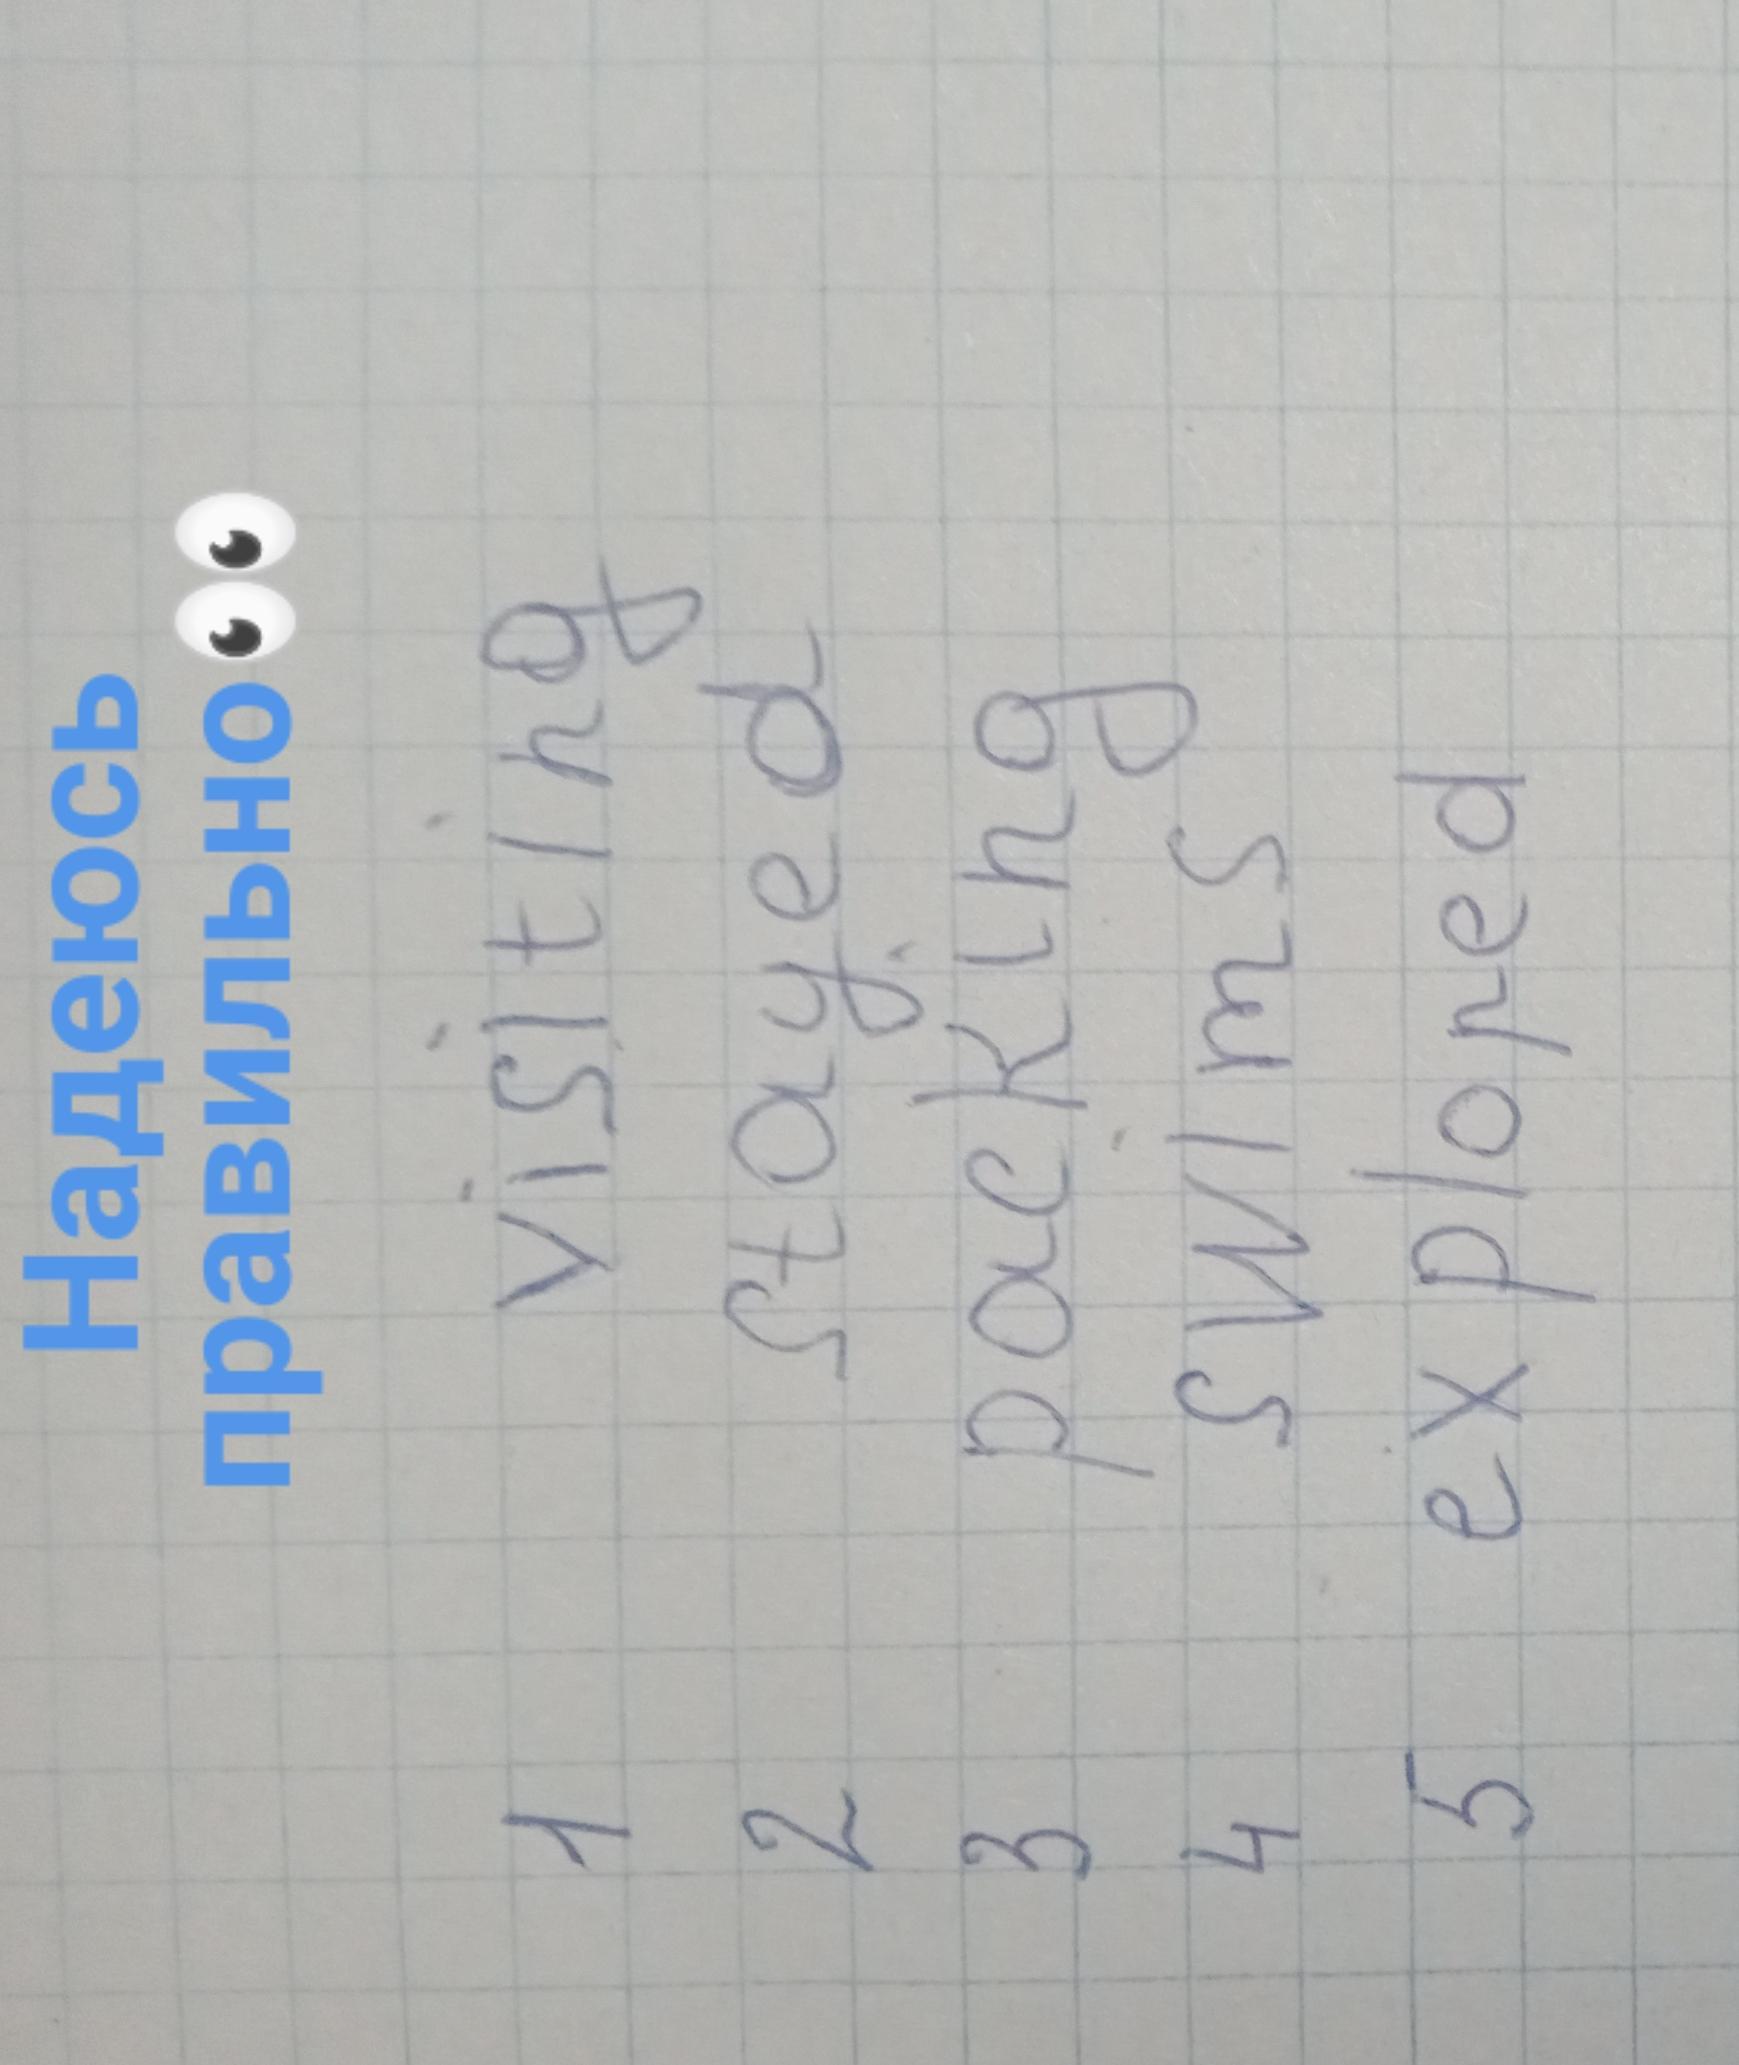 Надеюсь
правильно👀
1 visiting
2 stayed
3 packing
4 swims
5 explored